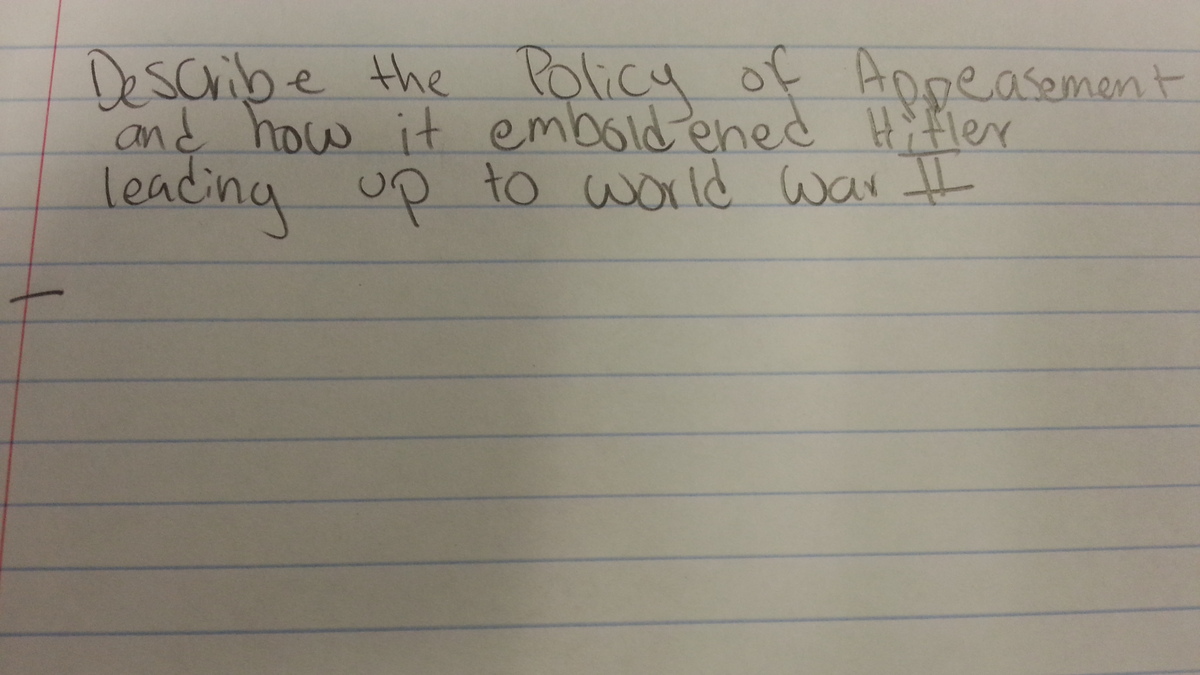 Describe the Policy of Appeasement
and how it emboldened Hitler
leading up to world war II